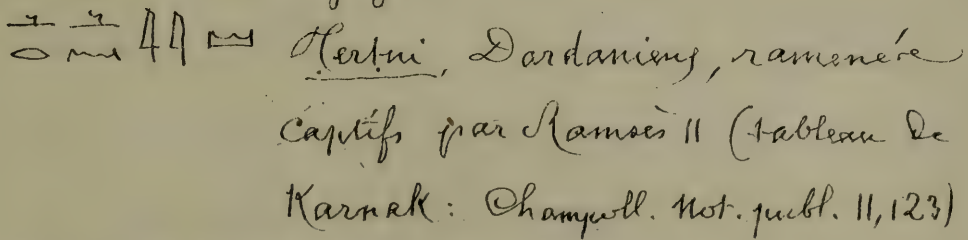 Hertni, Dardaniens, ramenés
captifs par Ramsès II (tableau de
Karnak: Champoll. Not. publ. II, 123)